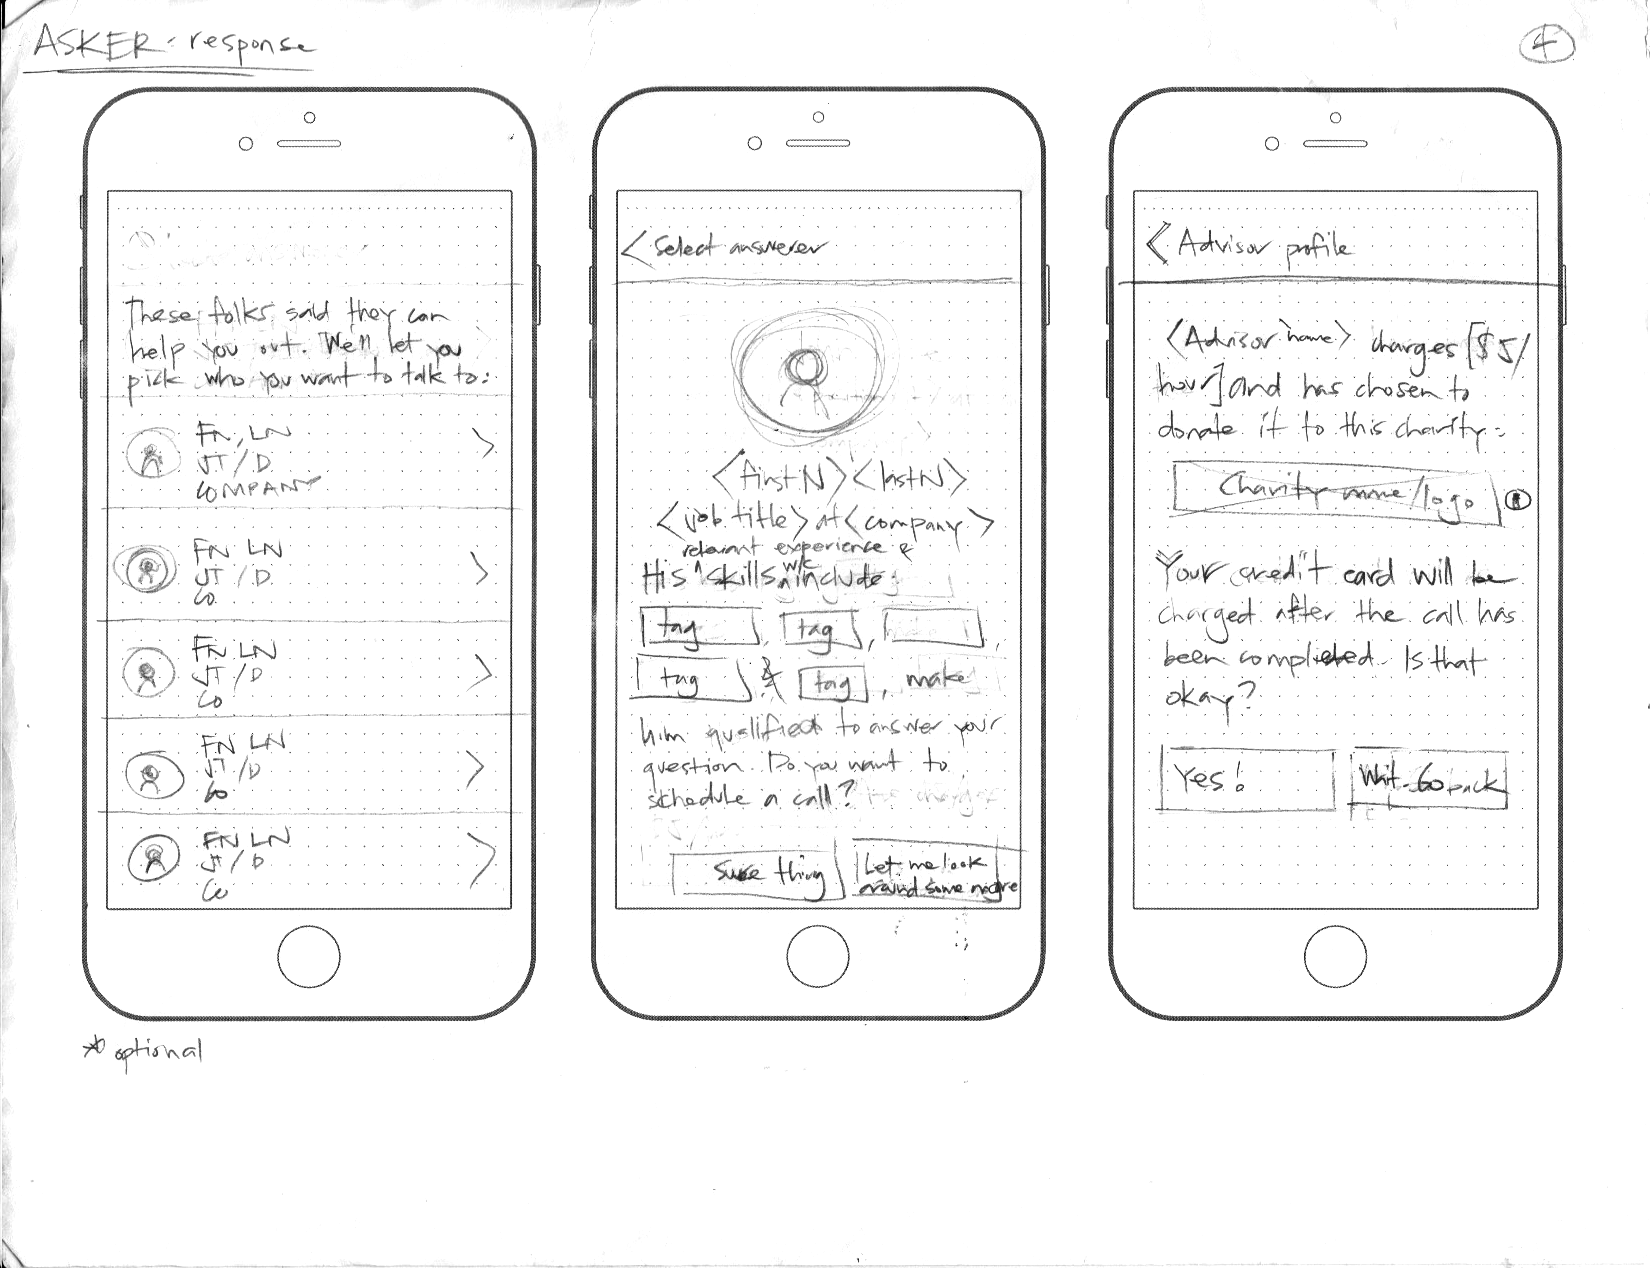 ASKER: response
4
These folks said they can
help you out. We'll let you
pick who you want to talk to:
FN, LN
JT / D
COMPANY
FN LN
JT / D
CO
FN LN
JT / D
CO
FN LN
JT / D
CO
FN LN
JT / D
CO
* optional
< Select answerer
<firstN> <lastN>
<job title> at <company>
relevant experience &
His ^ skills w/c include:
tag, tag, ,
tag & tag, make
him qualified to answer your
question. Do you want to
schedule a call?
Sure thing
Let me look
around some more
< Advisor profile
<Advisor name> charges [$5/
hour] and has chosen to
donate it to this charity:
Charity name/logo
Your credit card will be
charged after the call has
been completed. Is that
okay?
Yes!
Wait. Go back